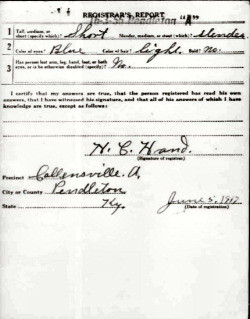 REGISTRAR'S REPORT
16-3-55 Pendleton "A"
1 Tall, medium, or short (specify which)? Short Slender, medium, or stout (which)? slender
2 Color of eyes? Blue Color of hair? Light Bald? no.
3 Has person lost arm, leg, hand, foot, or both eyes, or is he otherwise disabled (specify)? No.
I certify that my answers are true, that the person registered has read his own answers, that I have witnessed his signature, and that all of his answers of which I have knowledge are true, except as follows:
H. C. Hand.
(Signature of registrar)
Precinct Callensville. A,
City or County Pendleton
State Ky.
June 5, 1917
(Date of registration)